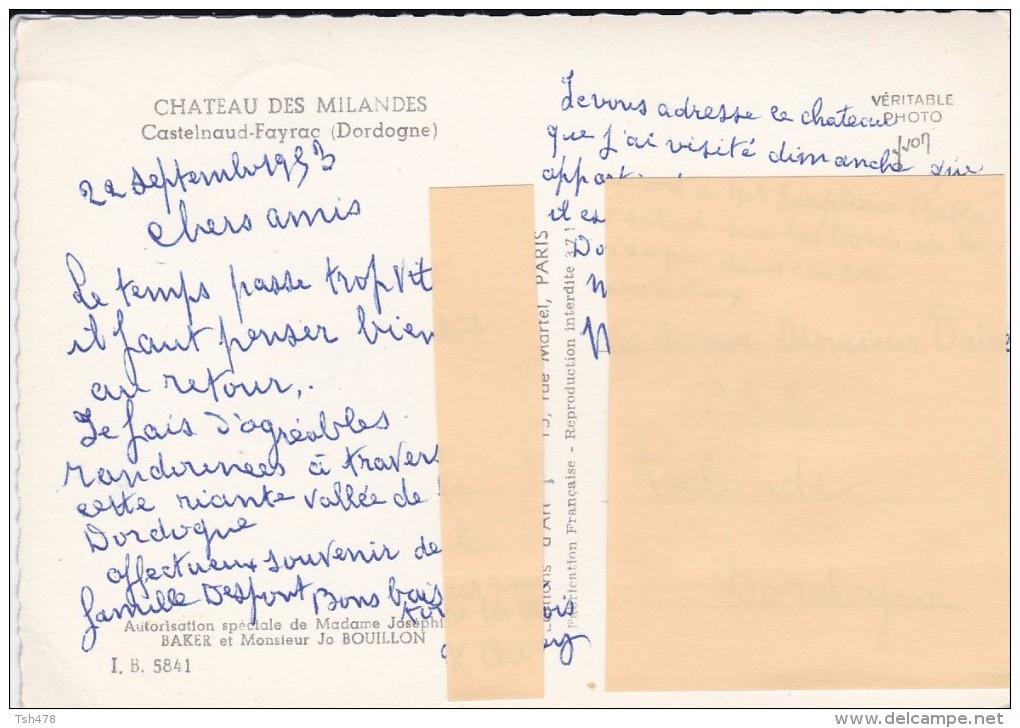 CHATEAU DES MILANDES
Castelnaud-Fayrac (Dordogne)
22 septembre 1953
chers amis
Le temps passe trop vit
il faut penser bien
au retour,.
Je fais d'agréables
randonnées à travers
cette riante vallée de
Dordogne
affectueux souvenir de
famille Despont Bons bais
Autorisation spéciale de Madame Joséphi
BAKER et Monsieur Jo BOUILLON
I. B. 5841
PARIS
rue Martel,
d'Art
Fabrication Française - Reproduction interdite
VÉRITABLE
PHOTO
yvon
Je vous adresse le chateau
que j'ai visité dimanche qui
appart
il es
Do
Tsh478
www.delcampe.net